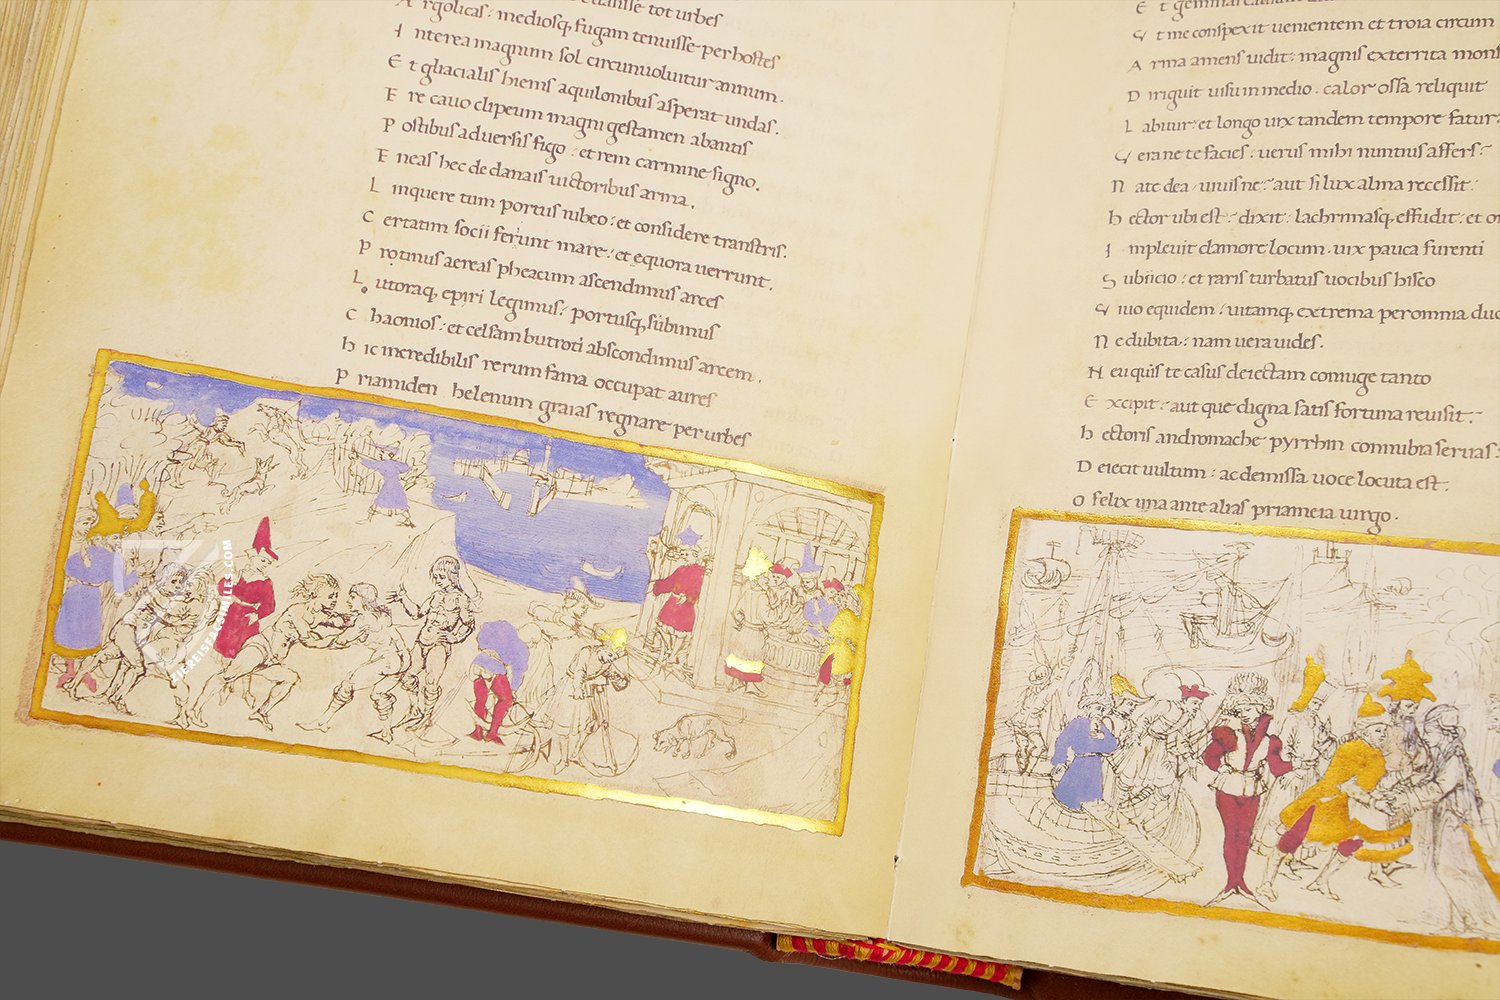 tot urbes
A rgolicas: mediosq, fugam tenuisse per hostes
I nterea magnum sol circumuoluitur annum.
E t glacialis hiems aquilonibus asperat undas.
E re cauo clipeum magni gestamen abantis
P ostibus aduersis figo: et rem carmine signo.
E neas hec de danais uictoribus arma.
L inquere tum portus iubeo: et considere transtris.
C ertatim socii feriunt mare: et equora uerrunt.
P rotinus aereas pheacum ascendimus arces
L utoraq, epiri legimus: portusq, subimus
C haonios: et celsam butroti abscondimus arcem.
h ic incredibilis rerum fama occupat aures
P riamiden helenum graias regnare per urbes
E t gemina
V t me conspexit uenientem et troia circum
A rma amens uidit: magnis exterrita mons
D iriguit uisu in medio. calor ossa reliquit
L abitur: et longo uix tandem tempore fatur
V erane te facies: uerus mihi nuntius affers:
N ate dea: uiuisne: aut si lux alma recessit:
h ector ubi est: dixit: lachrimasq, effudit: et
I mpleuit clamore locum. uix pauca furenti
S ubiicio: et raris turbatus uocibus hisco
V iuo equidem: uitamq, extrema per omnia duc
N e dubita: nam uera uides.
H eu quis te casus deiectam coniuge tanto
E xcipit: aut que digna satis fortuna reuisit:
h ectoris andromache pyrrhin connubia seruas:
D eiecit uultum: ac demissa uoce locuta est.
O felix una ante alias priameia uirgo.
ZIEREISFACSIMILES.COM